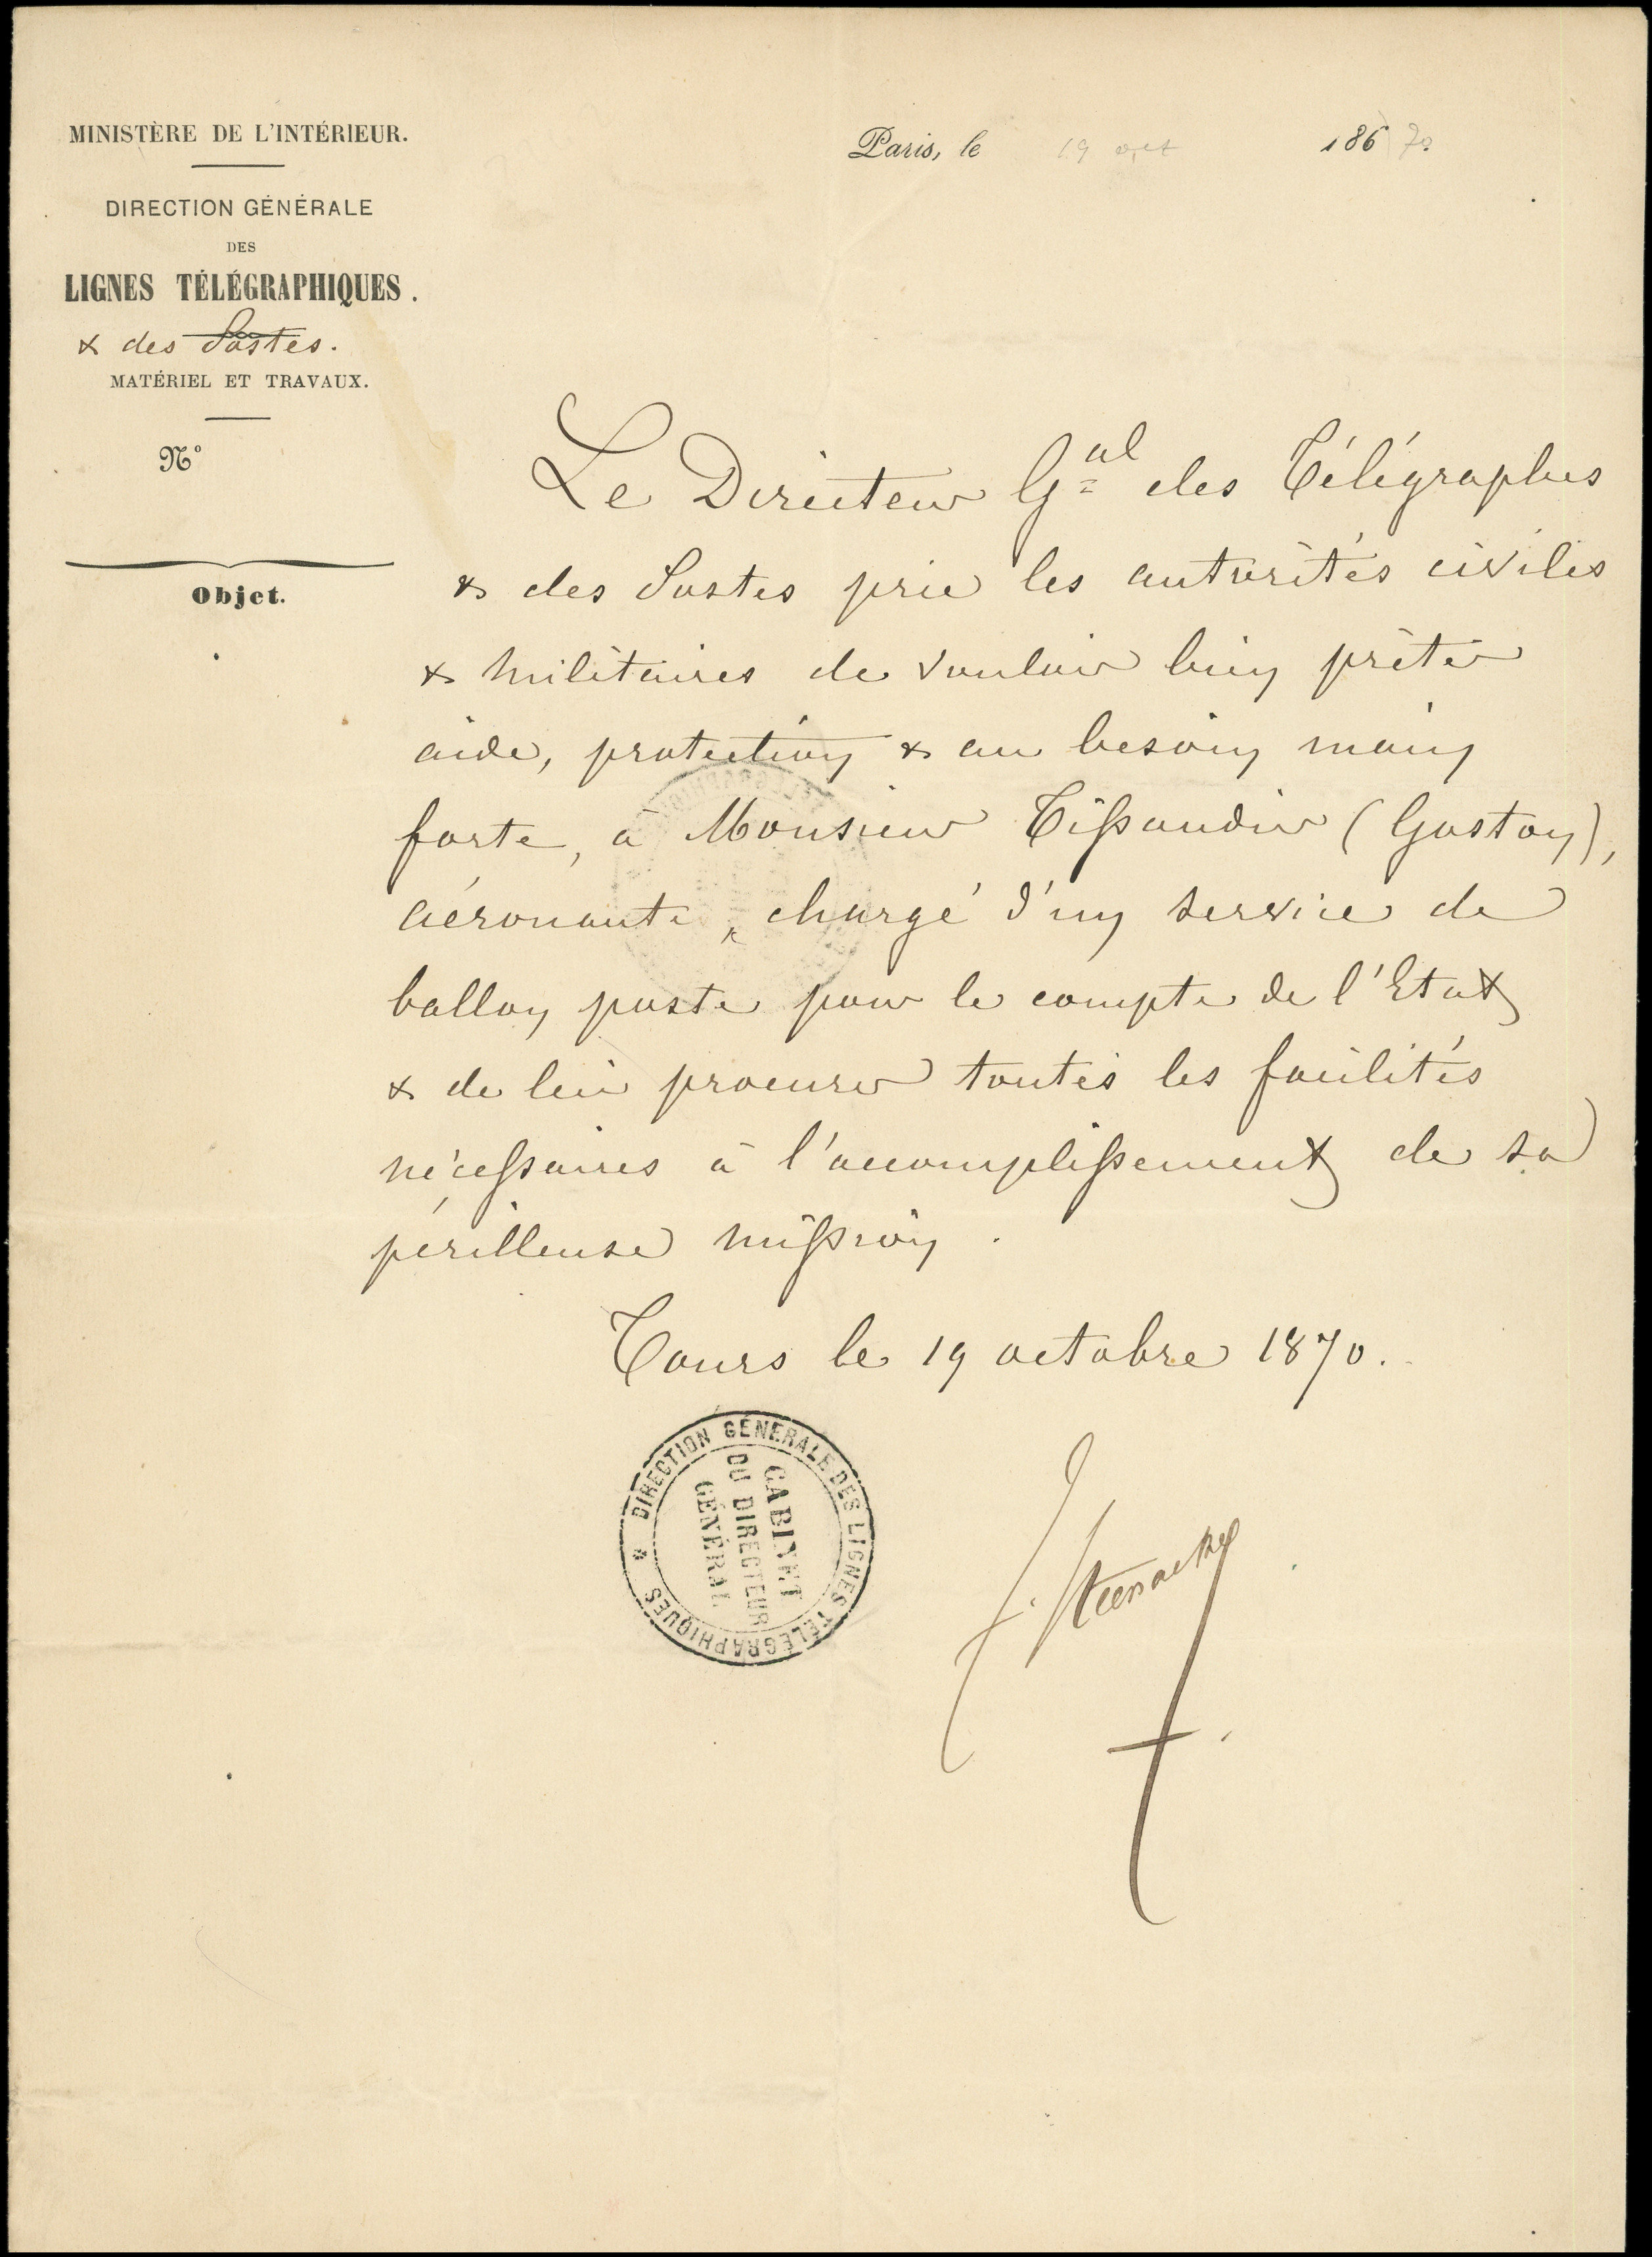 MINISTÈRE DE L'INTÉRIEUR.
DIRECTION GÉNÉRALE
DES
LIGNES TÉLÉGRAPHIQUES.
& des Postes.
MATÉRIEL ET TRAVAUX.
N°
Objet.
Paris, le 19 oct 186 70
Le Directeur Gal des Télégraphes
& des Postes prie les autorités civiles
& militaires de vouloir bien prêter
aide, protection & au besoin main
forte, à Monsieur Tissandier (Gaston),
aéronaute, chargé d'un service de
ballon poste pour le compte de l'Etat
& de lui procurer toutes les facilités
nécessaires à l'accomplissement de sa
périlleuse mission.
Tours le 19 octobre 1870.
DIRECTION GÉNÉRALE DES LIGNES TÉLÉGRAPHIQUES *
CABINET
DU DIRECTEUR
GÉNÉRAL
F. Steenackers